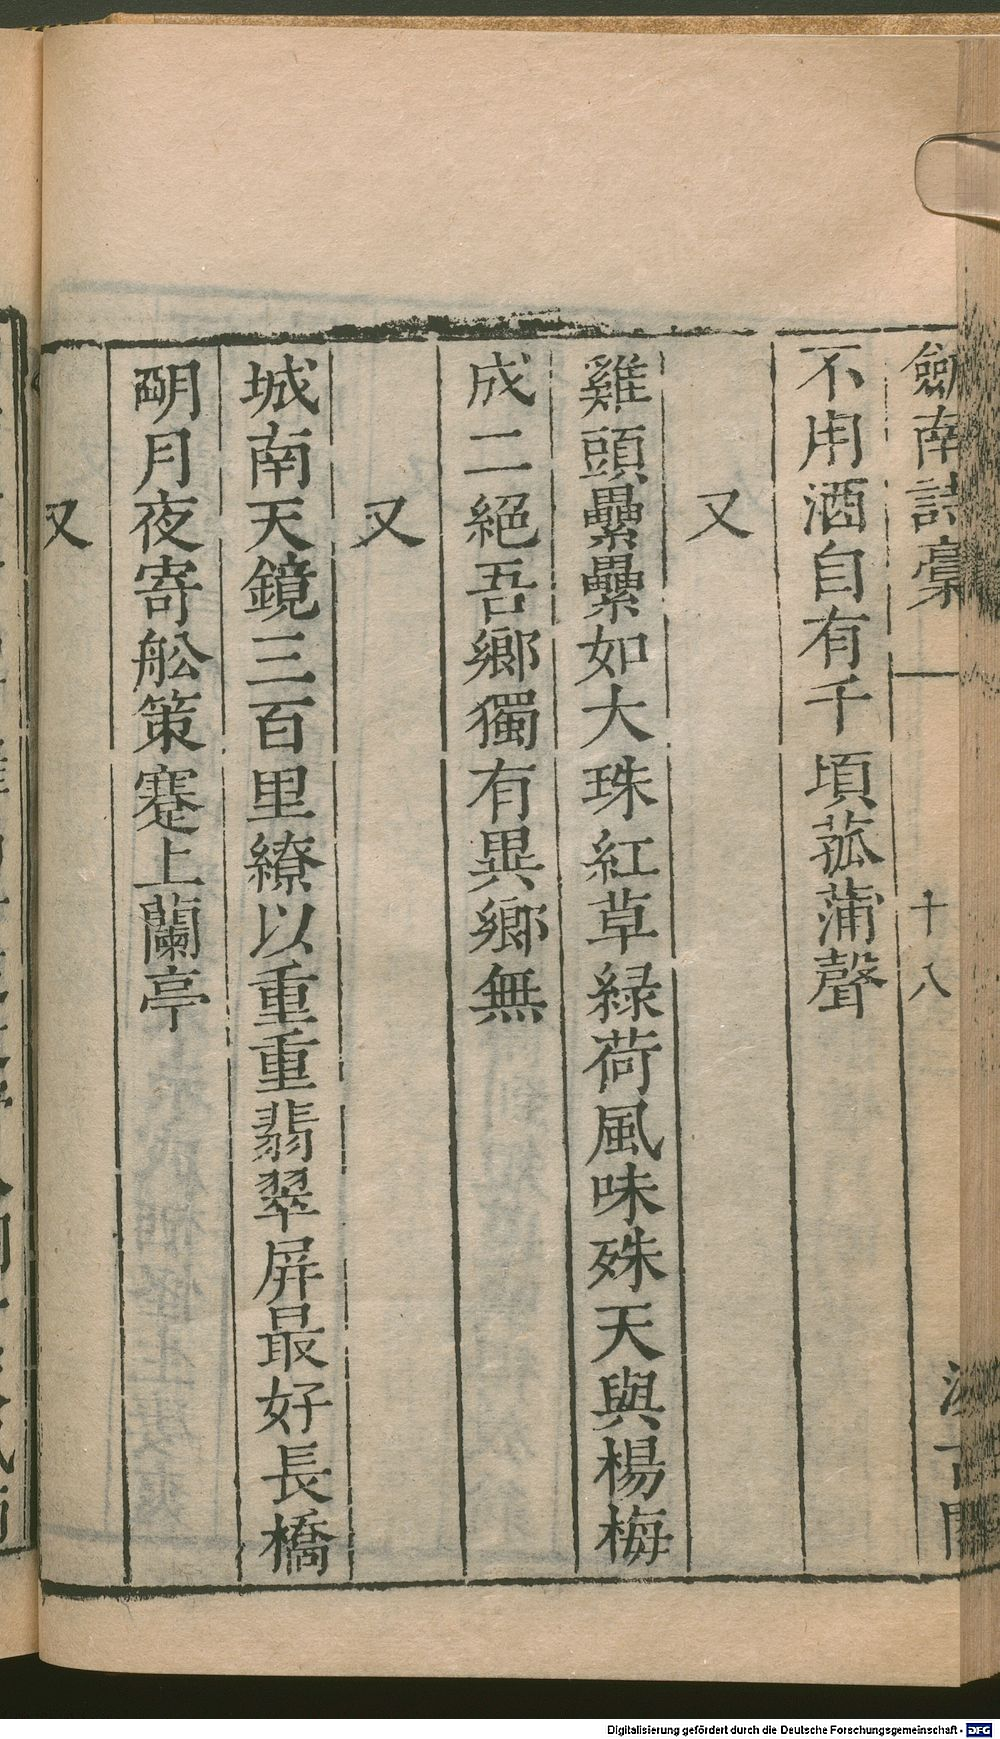 劍南詩稾 十八 汲古閣
不用酒自有千頃菰蒲聲
又
雞頭纍纍如大珠紅草緑荷風味殊天與楊梅
成二絕吾鄉獨有異鄉無
又
城南天鏡三百里繚以重重翡翠屏最好長橋
朙月夜寄舩策蹇上蘭亭
又
Digitalisierung gefördert durch die Deutsche Forschungsgemeinschaft - DFG